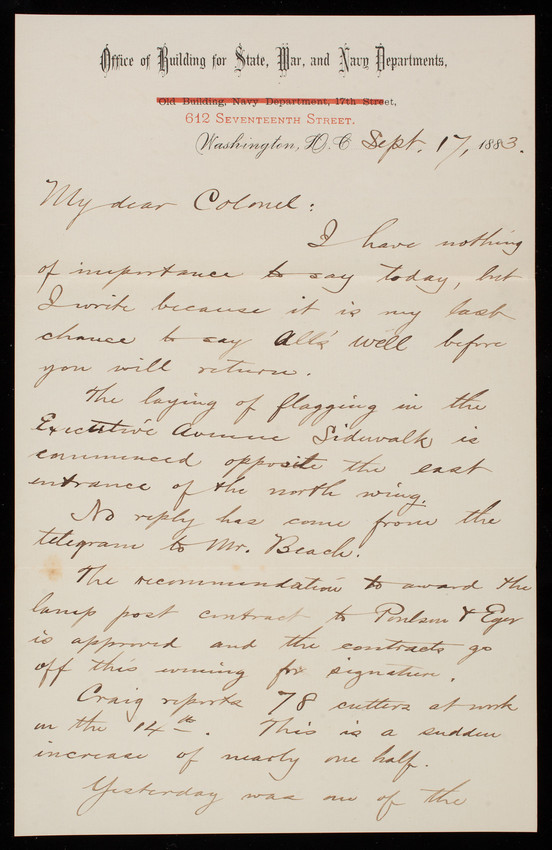 Office of Building for State, War, and Navy Departments,
Old Building, Navy Department, 17th Street,
612 Seventeenth Street.
Washington, D. C. Sept. 17, 1883.
My dear Colonel:
I have nothing
of importance to say today, but
I write because it is my last
chance to say All's Well before
you will return.
The laying of flagging in the
Executive Avenue Sidewalk is
commenced opposite the east
entrance of the north wing.
No reply has come from the
telegram to Mr. Beach.
The recommendation to award the
lamp post contract to Poulson & Eger
is approved and the contracts go
off this evening for signature.
Craig reports 78 cutters at work
on the 14th. This is a sudden
increase of nearly one half.
Yesterday was one of the